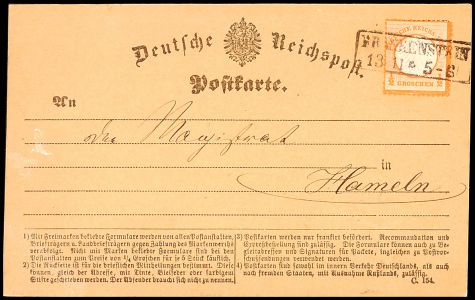 Deutsche Reichspost.
FRANKENSTEIN
13 11 5-6
½ GROSCHEN ½
Postkarte.
An
den Magistrat
in
Hameln
1) Mit Freimarken beklebte Formulare werden von allen Postanstalten,
Briefträgern u. Landbriefträgern gegen Zahlung des Markenwerths
verabfolgt. Nicht mit Marken beklebte Formulare sind bei den
Postanstalten zum Preise von ¼ Groschen für je 5 Stück zu beziehen.
2) Die Rückseite ist für die brieflichen Mittheilungen bestimmt. Diese
können, gleich der Adresse, mit Tinte, Bleifeder oder farbigem
Stifte geschrieben werden. Der Absender braucht sich nicht zu nennen.
3) Postkarten werden nur frankirt befördert. Recommandation und
Expreßbestellung sind zulässig. Die Formulare können auch zu Be-
gleitadressen und Signaturen für Packete, ingleichen zu Postvor-
schußsendungen verwendet werden.
4) Postkarten sind sowohl im innern Verkehr Deutschlands, als auch
nach fremden Staaten, mit Ausnahme Russland, zulässig.
C. 154.